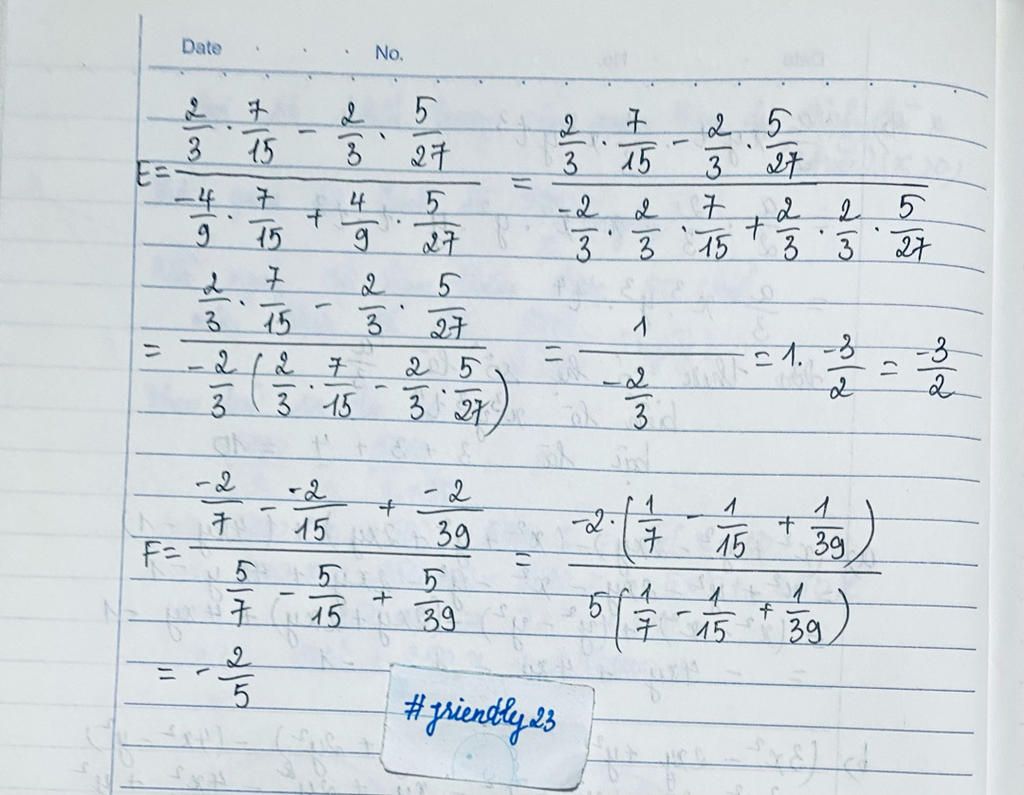 Date No.
E = \frac{\frac{2}{3} \cdot \frac{7}{15} - \frac{2}{3} \cdot \frac{5}{27}}{\frac{-4}{9} \cdot \frac{7}{15} + \frac{4}{9} \cdot \frac{5}{27}} = \frac{\frac{2}{3} \cdot \frac{7}{15} - \frac{2}{3} \cdot \frac{5}{27}}{\frac{-2}{3} \cdot \frac{2}{3} \cdot \frac{7}{15} + \frac{2}{3} \cdot \frac{2}{3} \cdot \frac{5}{27}}
= \frac{\frac{2}{3} \cdot \frac{7}{15} - \frac{2}{3} \cdot \frac{5}{27}}{-\frac{2}{3} \left( \frac{2}{3} \cdot \frac{7}{15} - \frac{2}{3} \cdot \frac{5}{27} \right)} = \frac{1}{-\frac{2}{3}} = 1 \cdot \frac{-3}{2} = \frac{-3}{2}
F = \frac{\frac{-2}{7} - \frac{-2}{15} + \frac{-2}{39}}{\frac{5}{7} - \frac{5}{15} + \frac{5}{39}} = \frac{-2 \cdot \left( \frac{1}{7} - \frac{1}{15} + \frac{1}{39} \right)}{5 \left( \frac{1}{7} - \frac{1}{15} + \frac{1}{39} \right)}
= -\frac{2}{5}
#friendly23